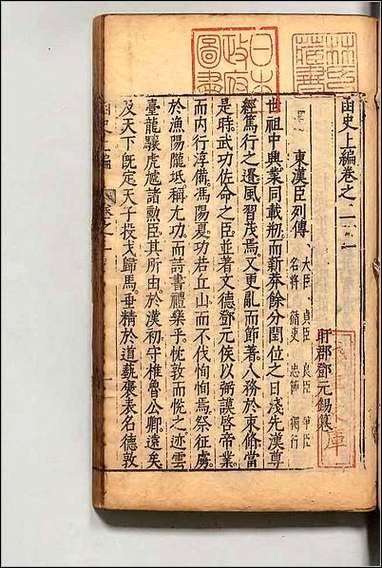 函史上編卷之二十一
盱郡鄧元錫纂
東漢臣列傳
大臣 貞臣 良臣 爭臣
名將 循吏 忠節 獨行
世祖中興業同載籾而新莽餘分閏位之日淺先漢尊
經篤行之遺風習茂焉又更亂而節著人務於束脩當
是時武功佐命之臣並著文德鄧元侯以弼謨啓帝業
而內行淳備馮陽夏功若丘山而不伐恂恂焉祭征虜
於漁陽隴坻稱尤功而詩書禮樂乎忱敦而悅之迹雲
臺龍驤虎嘑諸勲臣其所由於漢初守椎魯公卿遠矣
及天下旣定天子投戈歸馬垂精於道藝襃表名德敦
函史上編
卷之
日本
政府
圖書
林氏
藏書